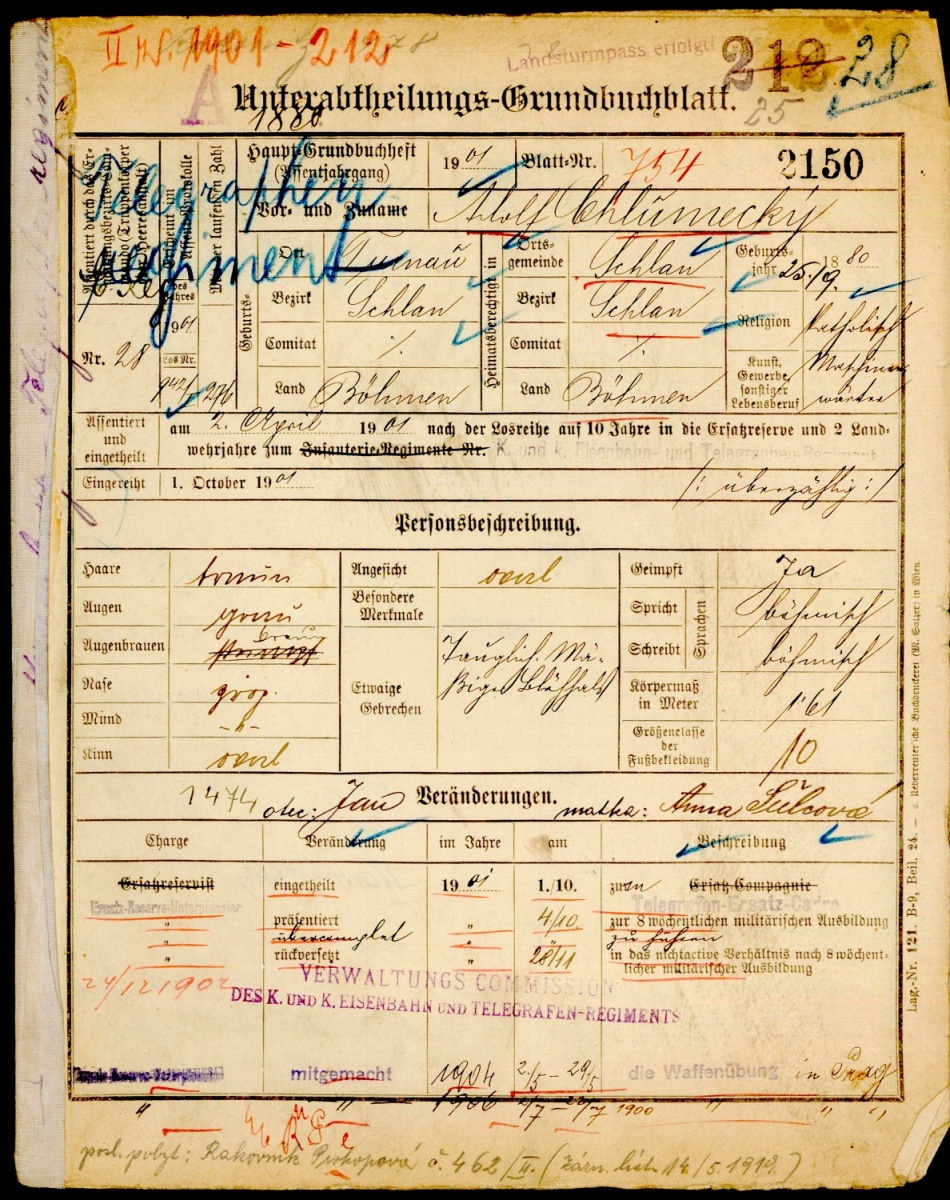 II 1901 - 212
Landsturmpass erfolgt!
212 28
25
A
Unterabtheilungs-Grundbuchblatt.
1880
Telegraphen
regiment
Haupt-Grundbuchheft
(Assentjahrgang)
1901
Blatt-Nr.
754
2150
Vor- und Zuname
Adolf Chlumecký
Geburts-
Ort
Turnau
Bezirk
Schlan
Comitat
·/·
Land
Böhmen
Heimatsberechtigt in
Orts-
gemeinde
Schlan
Bezirk
Schlan
Comitat
·/·
Land
Böhmen
Geburts-
jahr
1880
25./9.
Religion
katholisch
Kunst,
Gewerbe,
sonstiger
Lebensberuf
Maschinen
wärter
des
Jahres
1901
Nr. 28
Los Nr.
942
276
Assentiert
und
eingetheilt
am 2. April 1901 nach der Losreihe auf 10 Jahre in die Ersatzreserve und 2 Land-
wehrjahre zum Infanterie-Regimente Nr. K. und k. Eisenbahn- und Telegraphen-Regiment
Eingereiht
1. October 1901
(: überzählig :)
Personsbeschreibung.
Haare
braun
Augen
grau
Augenbrauen
braun
Nase
groß.
Mund
-"-
Kinn
oval
Angesicht
oval
Besondere
Merkmale
Etwaige
Gebrechen
Tauglich. Mä-
ßiger Blähhals
Geimpft
Ja
Spricht
Sprachen
böhmisch
Schreibt
böhmisch
Körpermaß
in Meter
1·61
Größenclasse
der
Fußbekleidung
10
1474
otec: Jan
Veränderungen.
matka: Anna Šulcová
Charge
Veränderung
im Jahre
am
Beschreibung
Ersatzreservist
eingetheilt
1901
1./10.
zum
Ersatz-Compagnie
Ersatz-Reserve-Unterpionnier
Telegrafen-Ersatz-Cadre
"
präsentiert
"
4/10.
zur 8 wöchentlichen militärischen Ausbildung
"
übercomplet
zu führen
"
rückversetzt
"
28/11
in das nichtactive Verhältnis nach 8 wöchent-
licher militärischer Ausbildung
24/12 1902
VERWALTUNGS COMMISSION
DES K. UND K. EISENBAHN UND TELEGRAFEN-REGIMENTS
mitgemacht
1904
2./5 – 29/5
die Waffenübung
in Prag
"
"
1906
1906
"
"
"
posl. pobyt: Rakovník Prokopová č. 462/II. (zázn. list 14/5. 1919.)
Lag.-Nr. 121. B-9, Beil. 24.